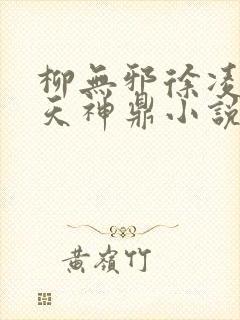 柳無邪徐凌
天神鼎小說
黃嶺竹